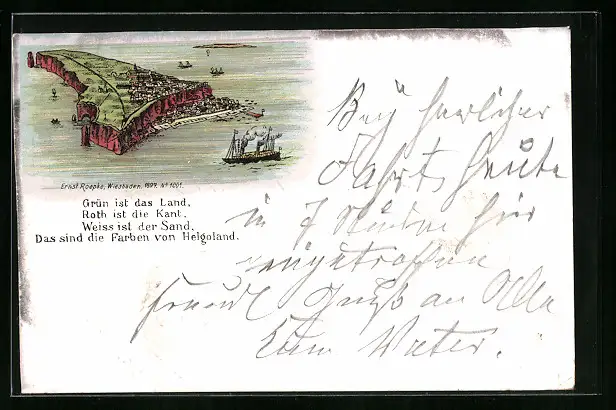 Ernst Roepke, Wiesbaden. 1897. Nº 1001.
Grün ist das Land,
Roth ist die Kant,
Weiss ist der Sand,
Das sind die Farben von Helgoland.
Bey herlicher
Fahrt heute
in 7 Stunden hier
eingetroffen
freundl Gruß an Alle
Euer Vater.